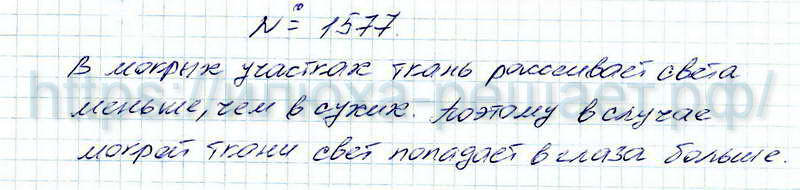 № 1577.
В мокрых участках ткань рассеивает света
меньше, чем в сухих. Поэтому в случае
мокрой ткани свет попадает в глаза больше.
https://эпоха-решает.рф/